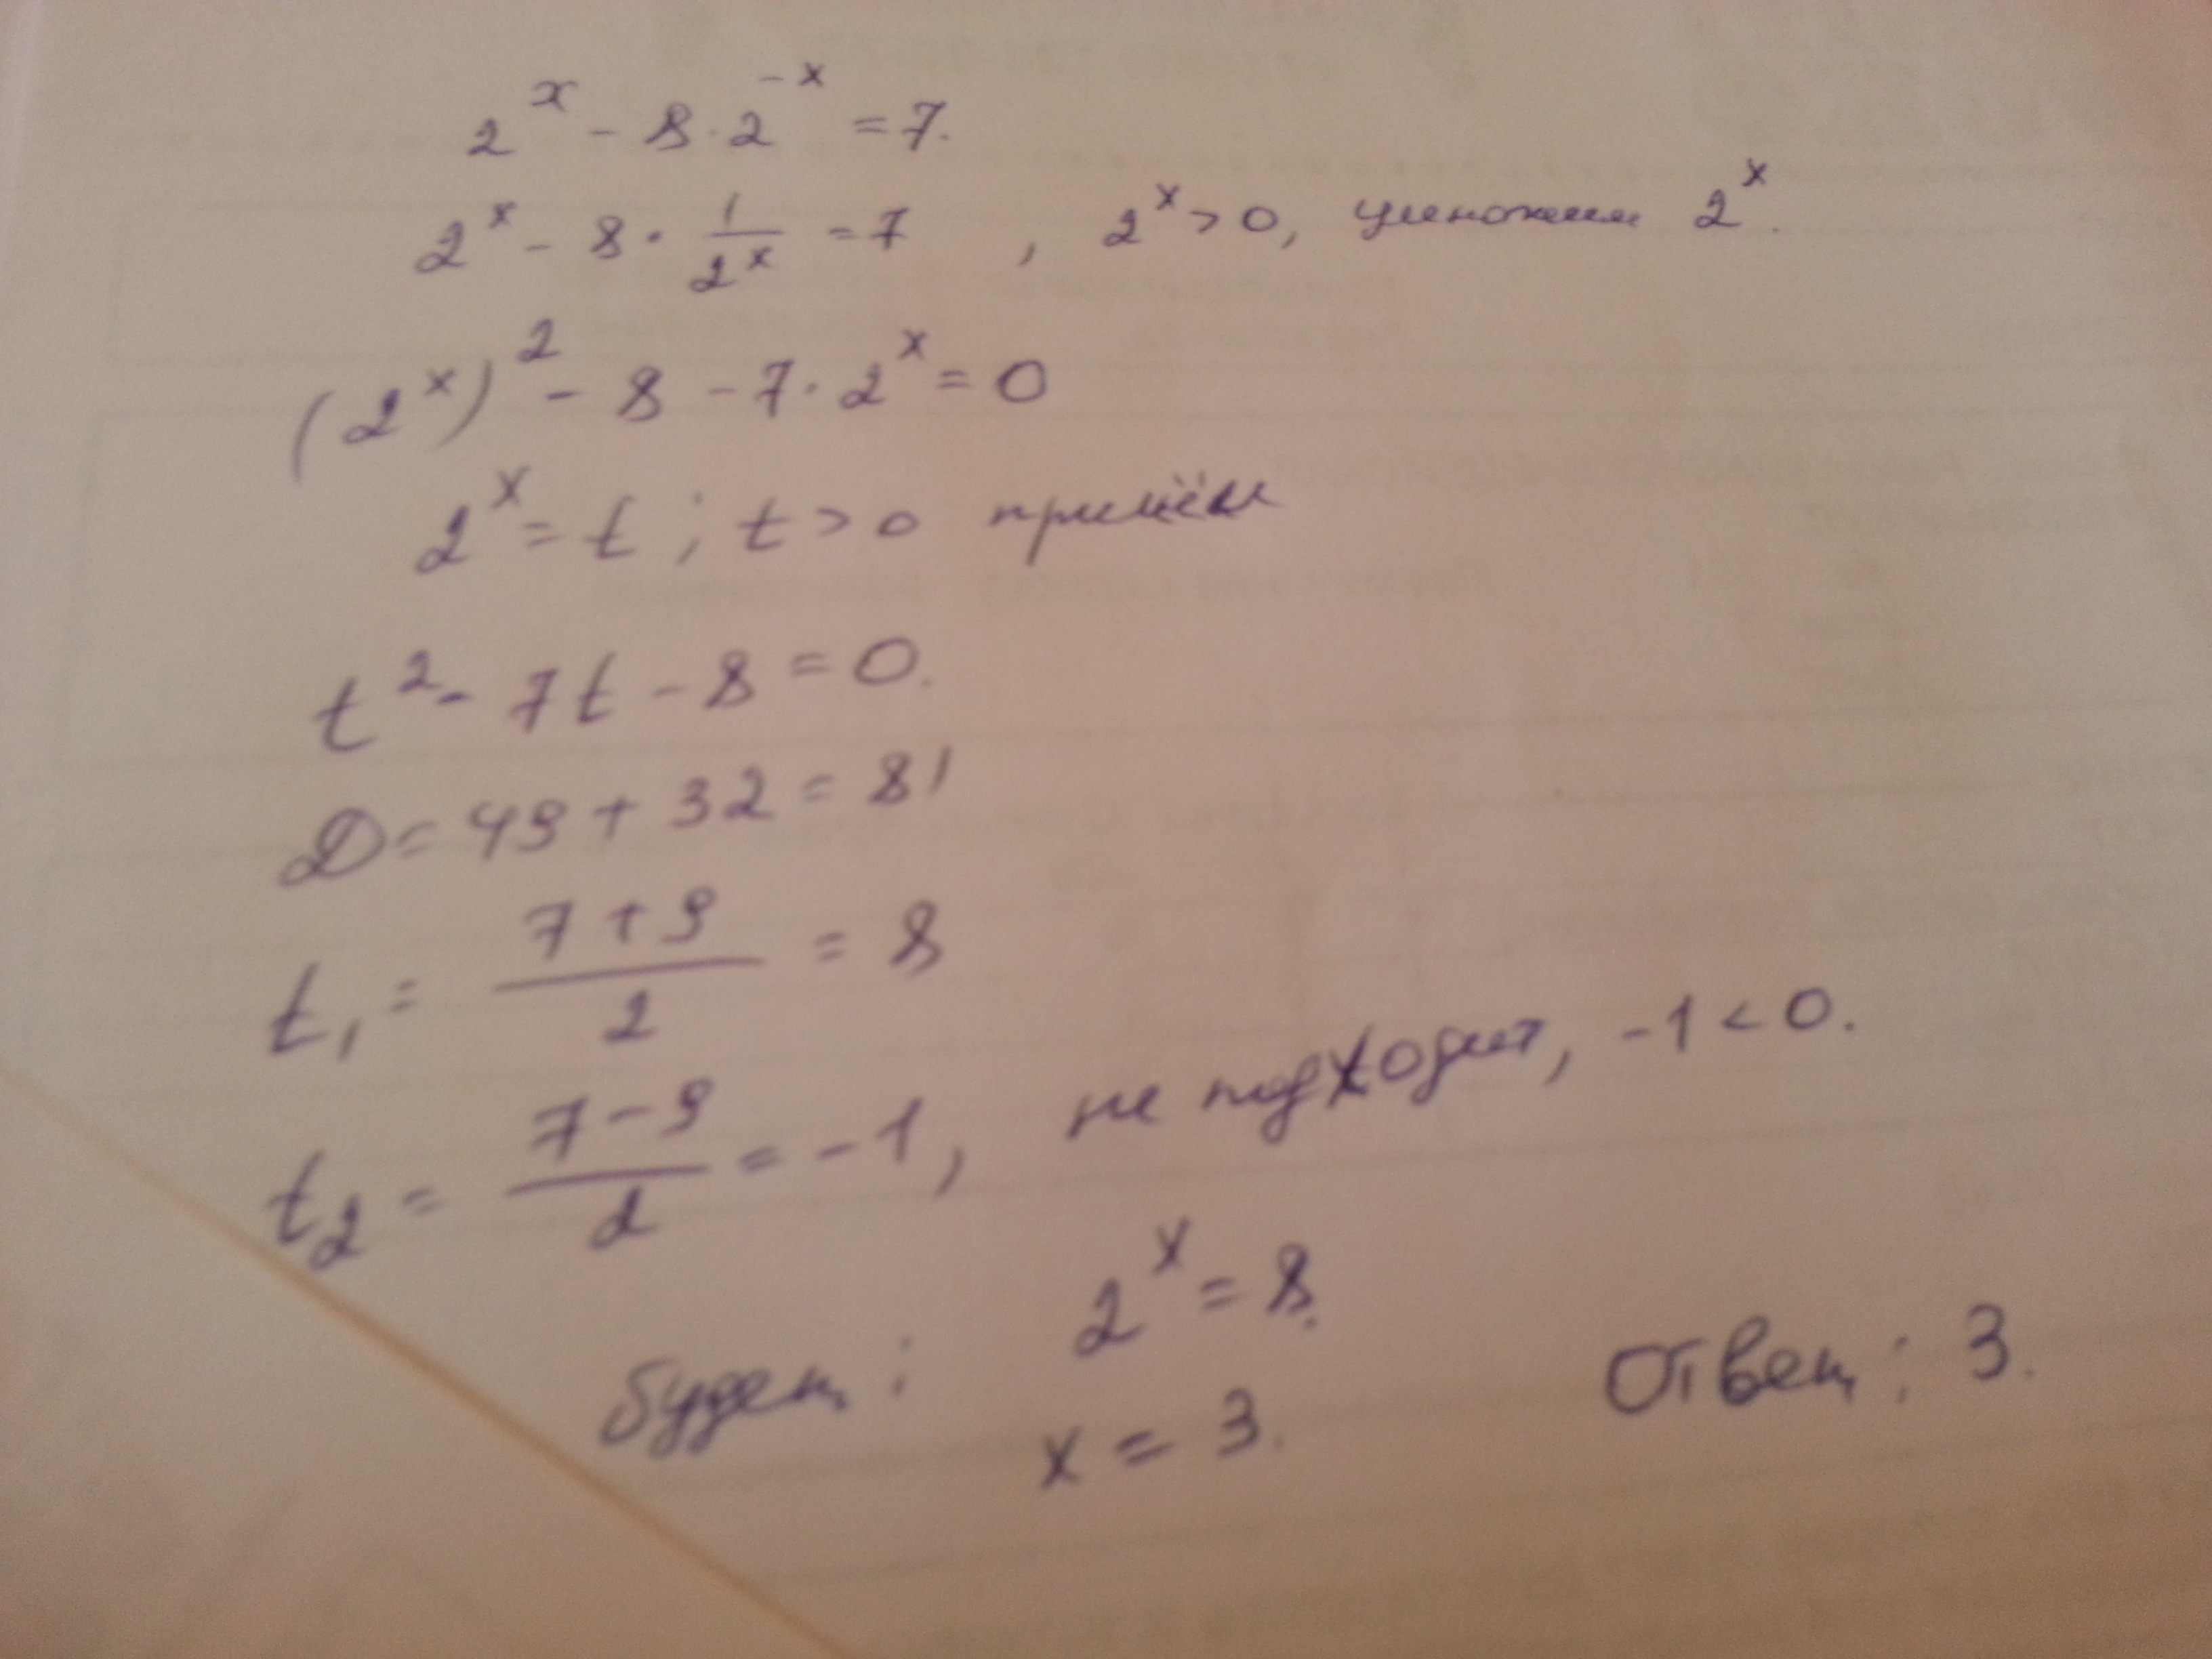 2^x - 8 · 2^{-x} = 7.
2^x - 8 · \frac{1}{2^x} = 7 , 2^x > 0, умножим 2^x.
(2^x)^2 - 8 - 7 · 2^x = 0
2^x = t ; t > 0 причём
t^2 - 7t - 8 = 0.
D = 49 + 32 = 81
t_1 = \frac{7+9}{2} = 8
t_2 = \frac{7-9}{2} = -1, не подходит, -1 < 0.
будет: 2^x = 8.
x = 3. Ответ: 3.